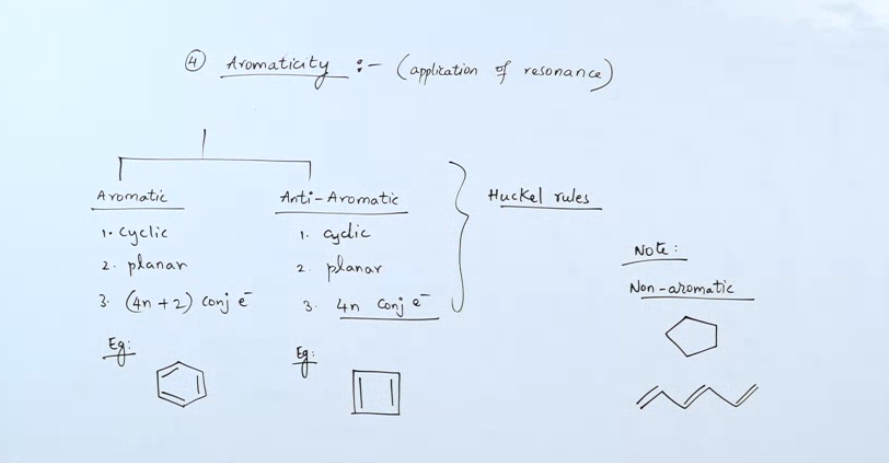 ④ Aromaticity :- (application of resonance)
Aromatic
1. cyclic
2. planar
3. (4n+2) conj e⁻
Eg:
Anti-Aromatic
1. cyclic
2. planar
3. 4n conj e⁻
Eg:
Huckel rules
Note:
Non-aromatic